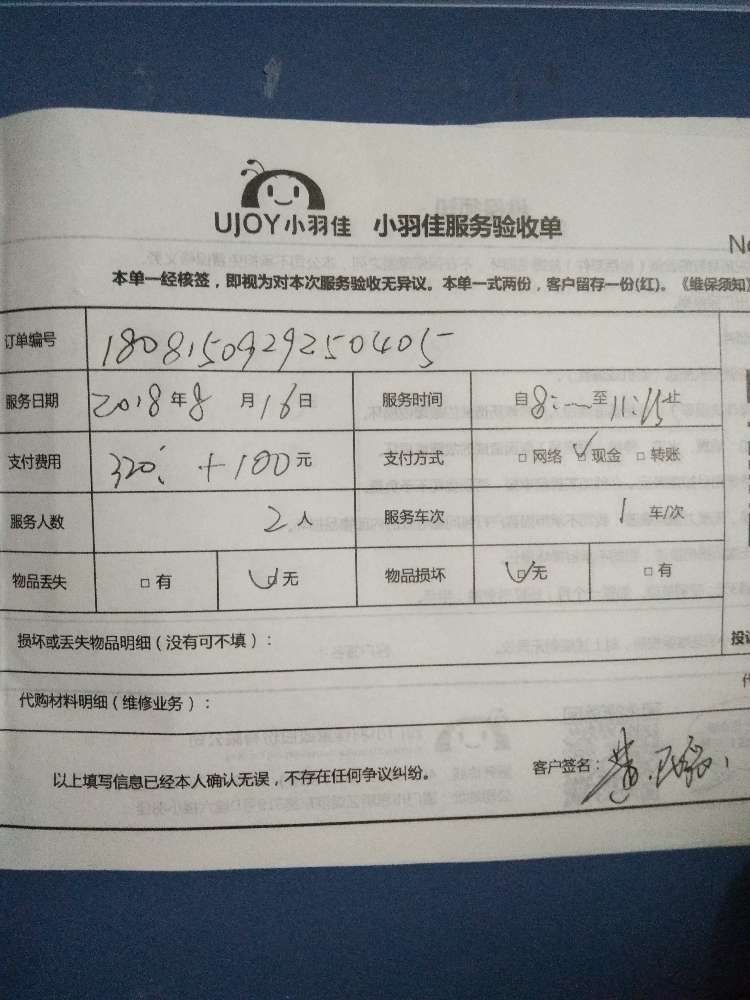 UJOY小羽佳 小羽佳服务验收单
No
本单一经核签，即视为对本次服务验收无异议。本单一式两份，客户留存一份(红)。《维保须知》
订单编号 1808150929250405
服务日期 2018年8月16日 服务时间 自8:—至11:15止
支付费用 320. +100元 支付方式 □网络 ☑现金 □转账
服务人数 2人 服务车次 1车/次
物品丢失 □有 ☑无 物品损坏 ☑无 □有
损坏或丢失物品明细（没有可不填）：
投诉
代购材料明细（维修业务）：
代
以上填写信息已经本人确认无误，不存在任何争议纠纷。 客户签名：黄